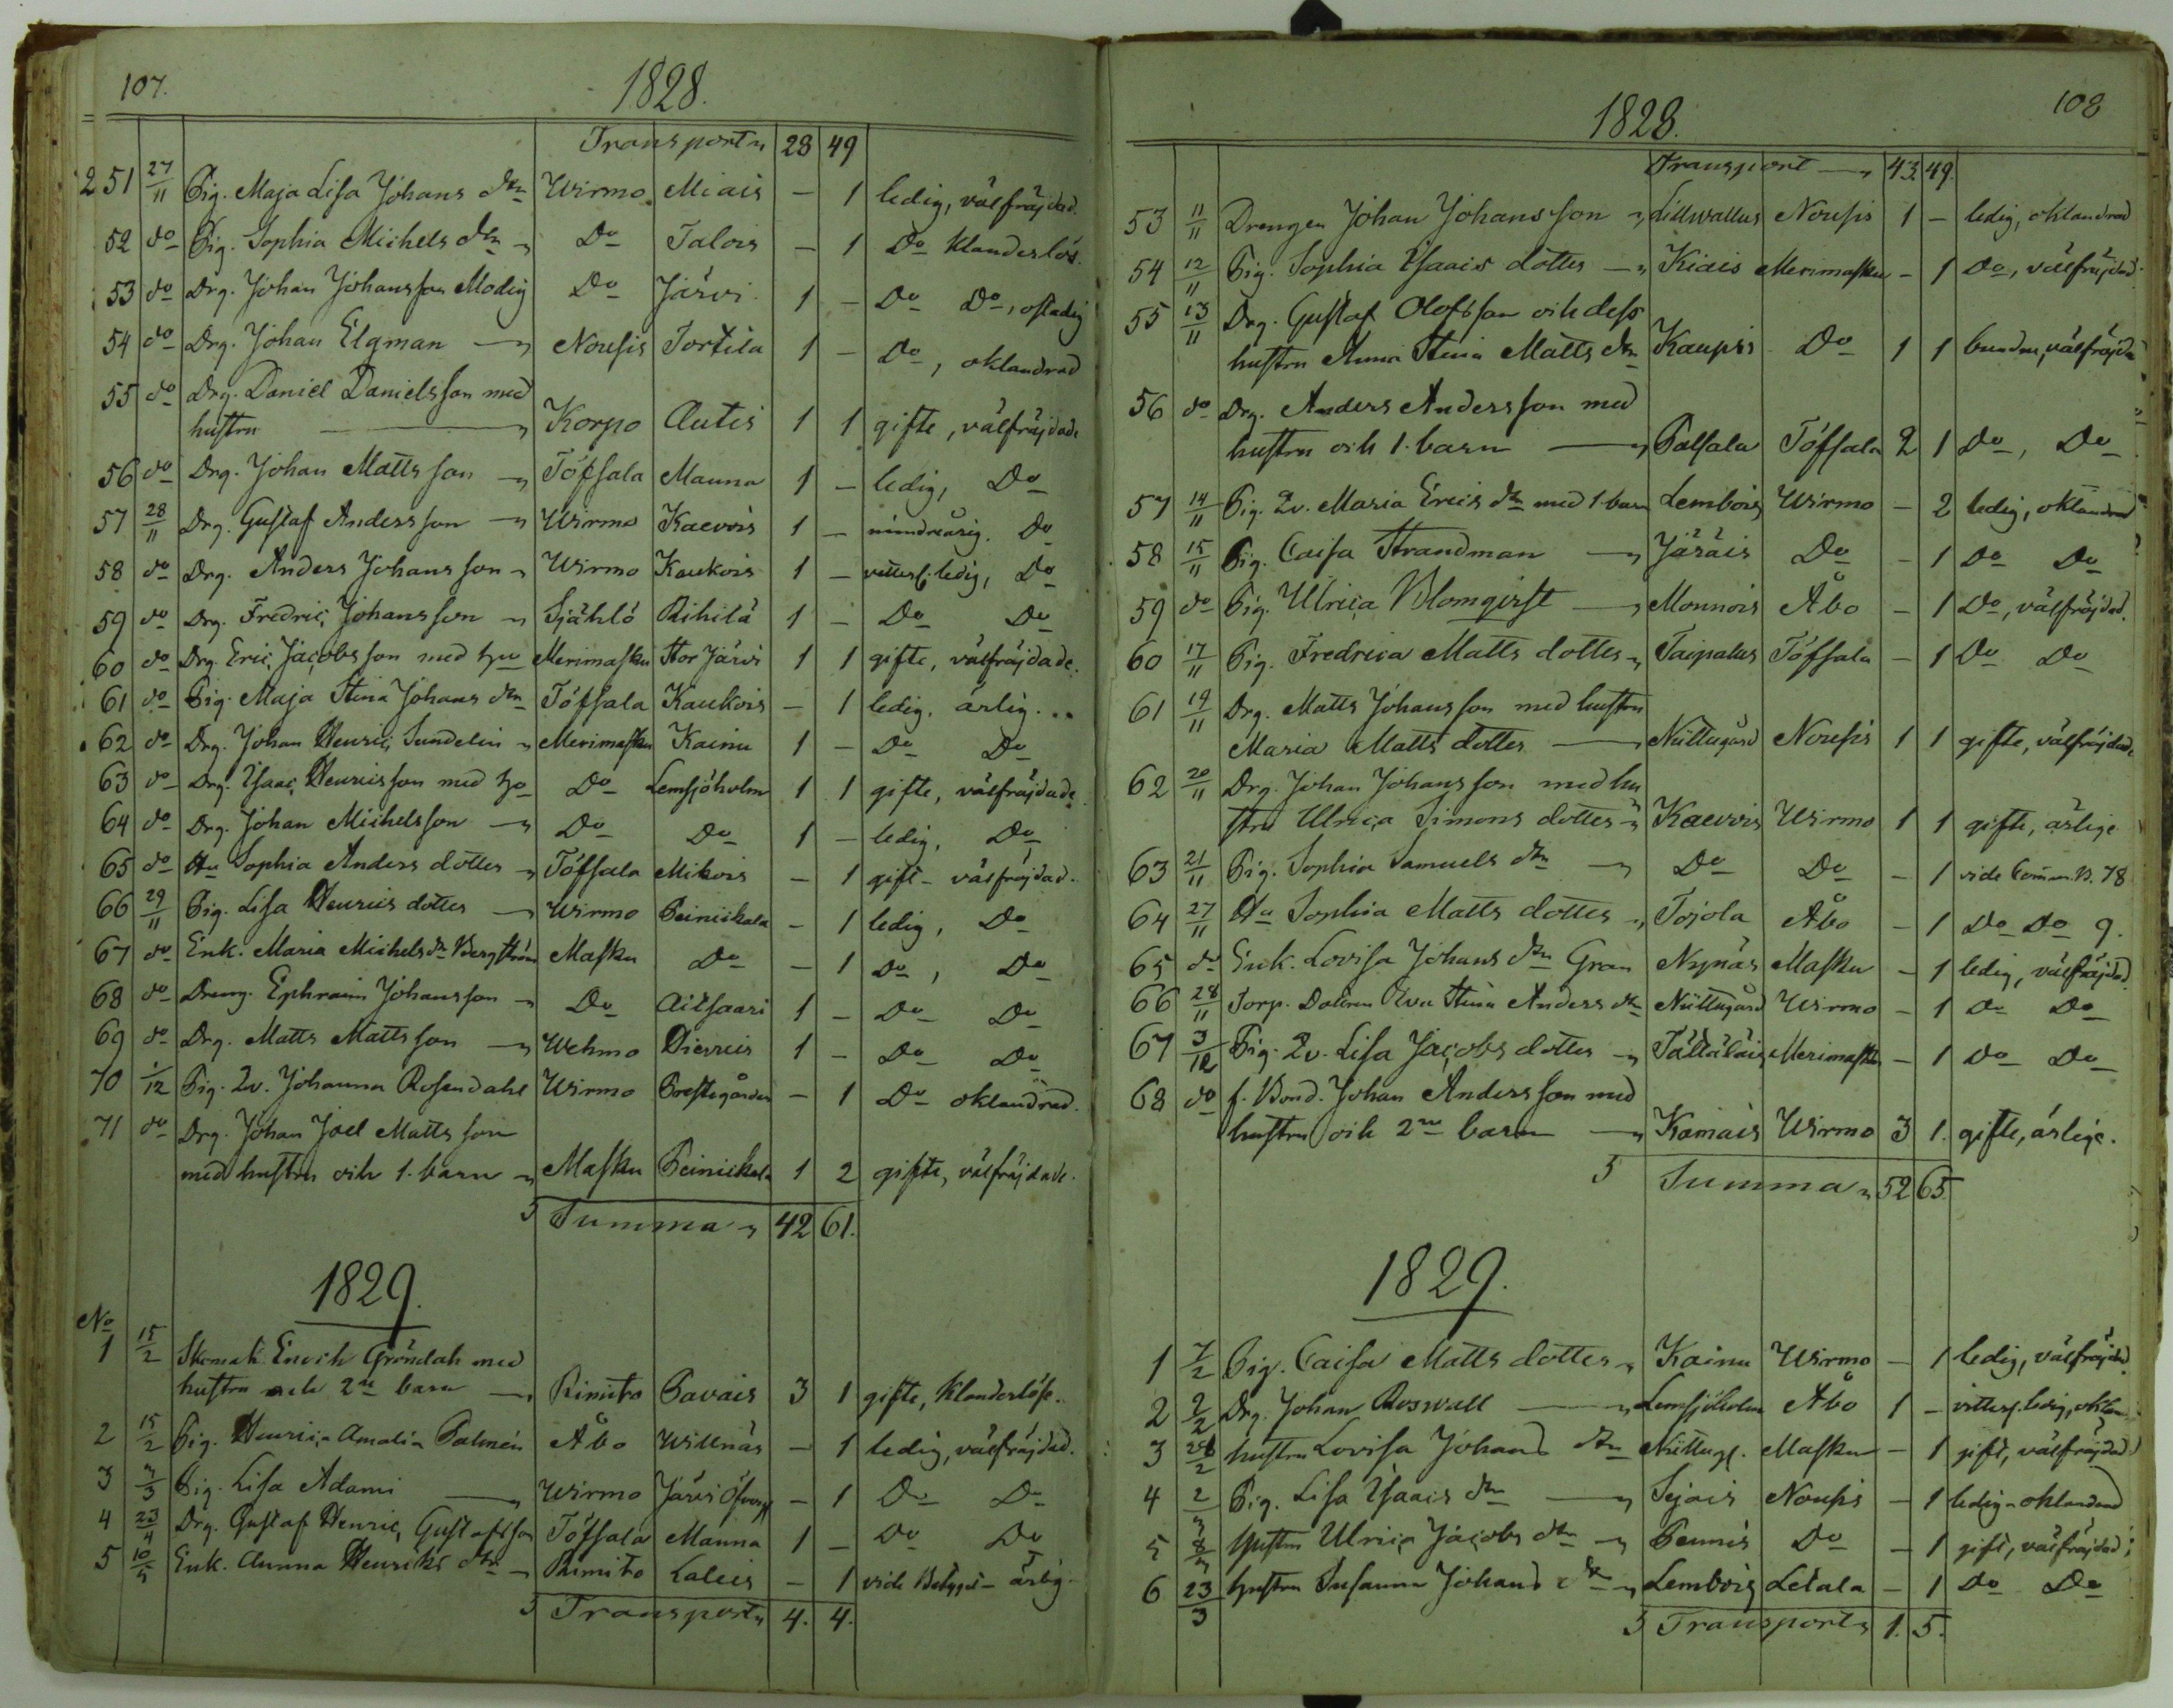 107.
1828.
Transport 28 49
251 27/11 Pig. Maja Lisa Johans dtr Wirmo Miais — 1 ledig, välfräjdad.
52 do Pig. Sophia Michels dtr Do Talois — 1 Do klanderlös.
53 do Drg. Johan Johansson Modig Do Järvi 1 — Do Do, ostadig
54 do Drg. Johan Elgman Nousis Tortila 1 — Do, oklandrad
55 do Drg. Daniel Danielsson med
hustru Korpo Autis 1 1 gifte, välfräjdade
56 do Drg. Johan Mattsson Töfsala Manna 1 — ledig, Do
57 28/11 Drg. Gustaf Andersson Wirmo Kaevois 1 — mindreårig. Do
58 do Drg. Anders Johansson Wirmo Kaukois 1 — vitterl. ledig, Do
59 do Drg. Fredric Johansson Sjählö Rihilä 1 — Do Do
60 do Drg. Eric Jacobsson med hu Merimasku Stor Järvi 1 1 gifte, välfräjdade.
61 do Pig. Maja Stina Johans dtr Töfsala Kaukois — 1 ledig. ärlig.
62 do Drg. Johan Henric Sundelin Merimasku Kainu 1 — Do Do
63 do Drg. Isaac Henricsson med ho Do Lemsjöholm 1 1 gifte, välfräjdade.
64 do Drg. Johan Michelsson Do Do 1 — ledig, Do
65 do Hu Sophia Anders dotter Töfsala Mikois — 1 gift välfräjdad.
66 29/11 Pig. Lisa Henrics dotter Wirmo Peinickala — 1 ledig, Do
67 do Enk. Maria Michels dr Bergström Masku Do — 1 Do, Do
68 do Dreng. Ephraim Johansson Do Aitsaari 1 — Do Do
69 do Drg. Matts Mattsson Wehmo 1 — Do Do
70 1/12 Pig. 2v. Johanna Rosendahl Wirmo Prestegården — 1 Do oklandrad.
71 do Drg. Johan Joel Mattsson
med hustru och 1. barn Masku Peinickala 1 2 gifte, välfräjdade.
Summa 42 61.
1829.
No
1 15/2 Skomak. Enoch Gröndah med
hustru och 2ne barn Rimito Pavais 3 1 gifte, klanderlöse.
2 15/2 Pig. Henrica Amalia Palmén Åbo Willnäs — 1 ledig, välfräjdad.
3 3/3 Pig. Lisa Adami Wirmo Järvis — 1 Do Do
4 23/4 Drg. Gustaf Henric Gustafsson Töfsala Manna 1 — Do Do
5 10/5 Enk. Anna Henriks dtr Rimito Laleis — 1 vide Betyget ärlig.
Transport 4. 4.
108
1828.
Transport 43 49.
53 11/11 Drengen Johan Johansson Lillwallus Nousis 1 — ledig, oklandrad
54 12/11 Pig. Sophia Isaacs dotter Kiais Merimasku — 1 Do, välfräjdad.
55 13/11 Drg. Gustaf Olofsson och dess
hustru Anna Stina Matts dtr Kaupis Do 1 1 bundne, välfräjda
56 do Drg. Anders Andersson med
hustru och 1. barn Palsala Töfsala 2 1 Do, Do
57 14/11 Pig. 2v. Maria Erics dtr med 1 barn Lembois Wirmo — 2 ledig, oklandrad
58 15/11 Pig. Caisa Strandman Järäis Do — 1 Do Do
59 do Pig. Ulrica Blomqvist Monnois Åbo — 1 Do, välfräjdad.
60 17/11 Pig. Fredrica Matts dotter Taipalus Töfsala — 1 Do Do
61 19/11 Drg. Matts Johansson med hustru
Maria Matts dotter Niittugård Nousis 1 1 gifte, välfräjdade
62 20/11 Drg. Johan Johansson med hu
stru Ulrica Simons dotter Kaevois Wirmo 1 1 gifte, ärlige
63 21/11 Pig. Sophia Samuels dtr Do Do — 1 vide Comm. B. 78
64 27/11 Hu Sophia Matts dotter Tojola Åbo — 1 Do Do 9.
65 do Enk. Lovisa Johans dtr Gran Nynäs Masku — 1 ledig, välfräjdad
66 28/11 Torp. Dottren Eva Stina Anders dtr Niittugård Wirmo — 1 Do Do
67 3/12 Pig. 2v. Lisa Jacobs dotter Tältäläis Merimasku — 1 Do Do
68 do f. Bond. Johan Andersson med
hustru och 2ne barn Kamais Wirmo 3 1. gifte, ärlige.
Summa 52 65.
1829.
1 7/2 Pig. Caisa Matts dotter Kainu Wirmo — 1 ledig, välfräjdad
2 9/2 Drg. Johan Roswall Lemsjöholm Åbo 1 — vitterl. ledig,
3 28/2 hustru Lovisa Johans dtr Niittug. Masku — 1 gift, välfräjdad
4 2/3 Pig. Lisa Isaacs dtr Sejais Nousis — 1 ledig oklandrad
5 8/3 Hustru Ulrica Jacobs dtr Pennis Do — 1 gift, välfräjdad
6 23/3 hustru Susanna Johans dtr Lembois Letala — 1 Do Do
Transport 1. 5.